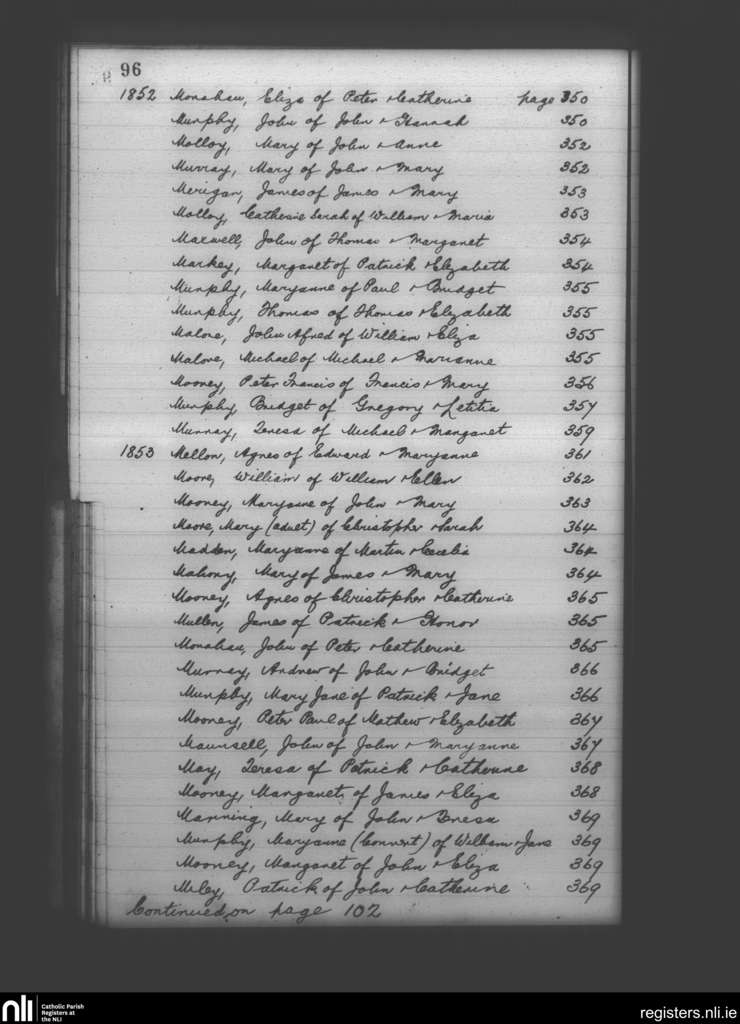 96
1852 Monahan, Eliza of Peter & Catherine page 350
Murphy, John of John & Hannah 350
Molloy, Mary of John & Anne 352
Murray, Mary of John & Mary 352
Merigan, James of James & Mary 353
Molloy, Catherine Sarah of William & Maria 353
Maxwell, John of Thomas & Margaret 354
Markey, Margaret of Patrick & Elizabeth 354
Murphy, Maryanne of Paul & Bridget 355
Murphy, Thomas of Thomas & Elizabeth 355
Malone, John Alfred of William & Eliza 355
Malone, Michael of Michael & Marianne 355
Mooney, Peter Francis of Francis & Mary 356
Murphy, Bridget of Gregory & Letitia 357
Murray, Teresa of Michael & Margaret 359
1853 Mellon, Agnes of Edward & Maryanne 361
Moore, William of William & Ellen 362
Mooney, Maryanne of John & Mary 363
Moore, Mary (aduet) of Christopher & Sarah 364
Madden, Maryanne of Martin & Cecelia 364
Mahony, Mary of James & Mary 364
Mooney, Agnes of Christopher & Catherine 365
Mullen, James of Patrick & Honor 365
Monahan, John of Peter & Catherine 365
Murray, Andrew of John & Bridget 366
Murphy, Mary Jane of Patrick & Jane 366
Mooney, Peter Paul of Mathew & Elizabeth 367
Maunsell, John of John & Maryanne 367
May, Teresa of Patrick & Catherine 368
Mooney, Margaret of James & Eliza 368
Manning, Mary of John & Teresa 369
Murphy, Maryanne (Convert) of William & Jane 369
Mooney, Margaret of John & Eliza 369
Miley, Patrick of John & Catherine 369
Continued on page 102
nli Catholic Parish
Registers at
the NLI
registers.nli.ie